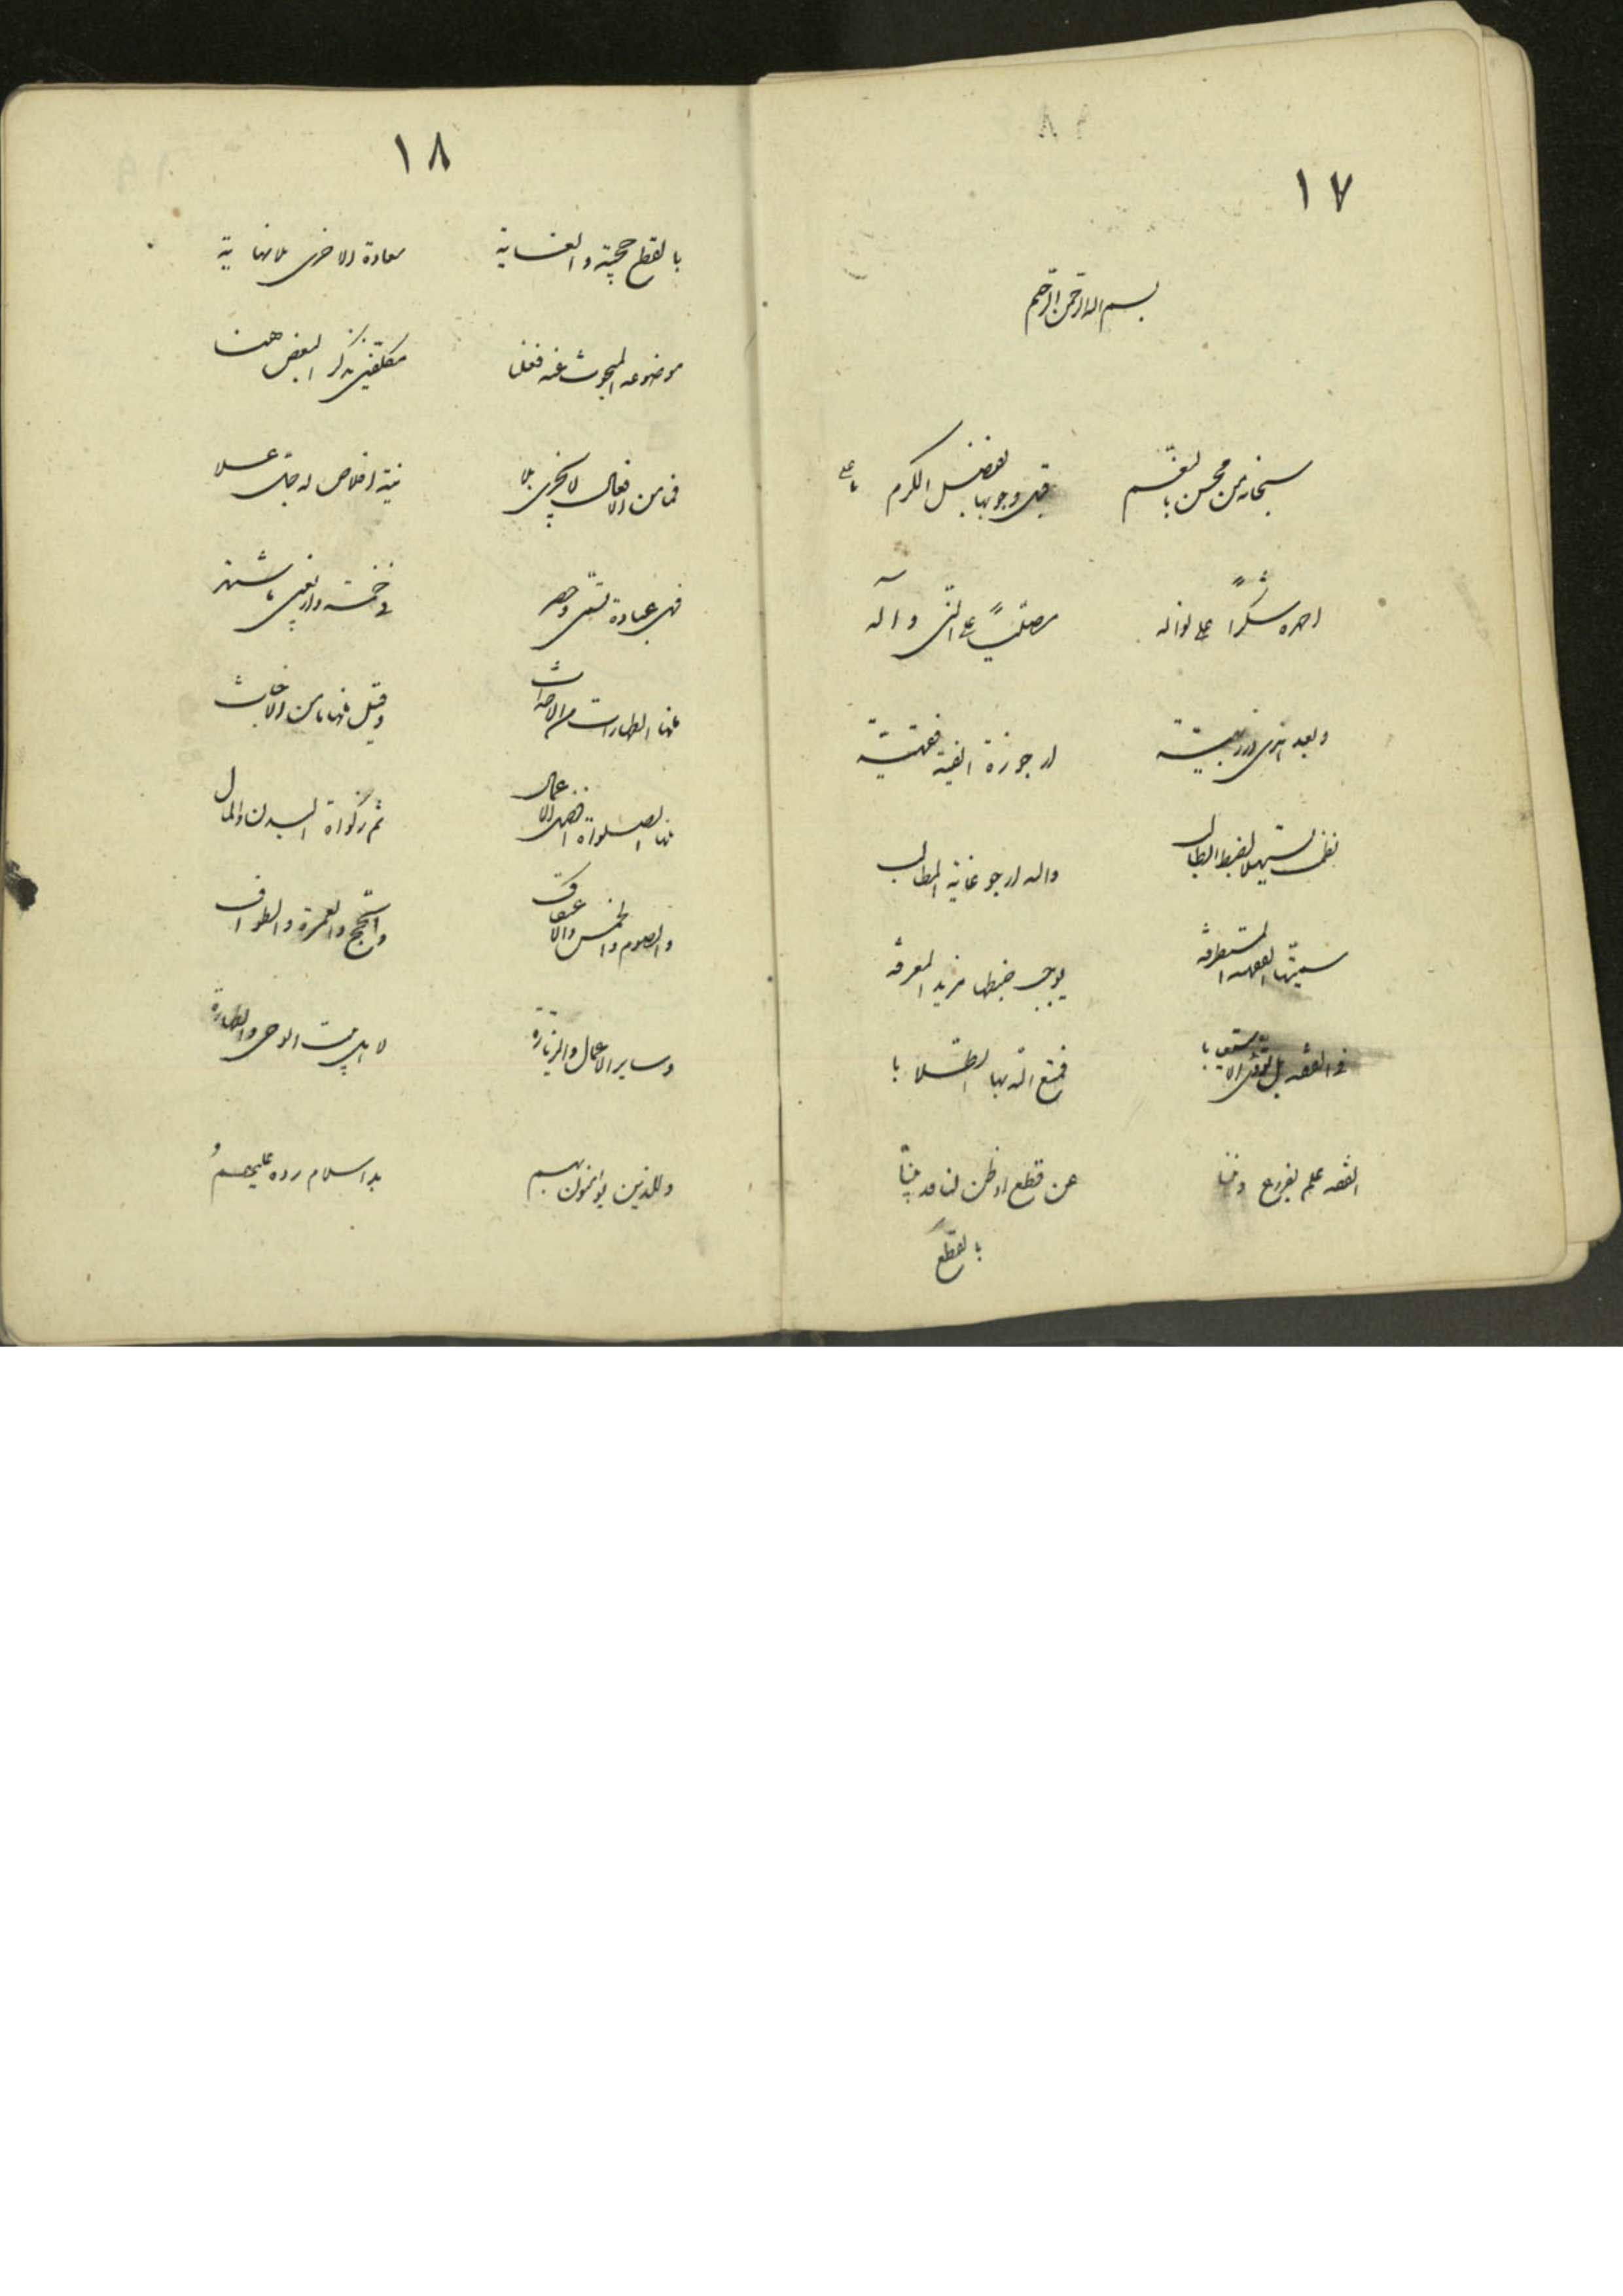 ١٧
بسم الله الرحمن الرحيم
سبحانه من محسن بالنعم قبل وجوبها بفضل الكرم
احمده شكرا على نواله مصلّيًا على النبي وآله
وبعد ارجوزة الفية فقهية
نظمت تسهيلا لضبط الطالب والله ارجو غاية المطالب
سميتها المستطرفة يوجب ضبطها مزيد المعرفة
في الفقه فمتع الله بها الطلابا
الفقه علم بفروع ديننا عن قطع او ظن لنا
بالقطع
١٨
بالقطع حجية والغاية سعادة الاخرى بلا نهاية
موضوعه المبحوث عنه فعل مكلفين
فما من الافعال لا يجزي بلا نية اخلاص له جل علا
فهي عبادة تسمى في خمسة واربعين
منها الطهارات من الاحداث وقيل منها ما من الاخباث
منها الصلوة افضل الاعمال ثم زكواة البدن والمال
والصوم والخمس والاعتكاف والحج والعمرة والطواف
وساير الاعمال والزيارة لاهل بيت الوحي والطهارة
وللذين بهم بدء سلام رده عليهم